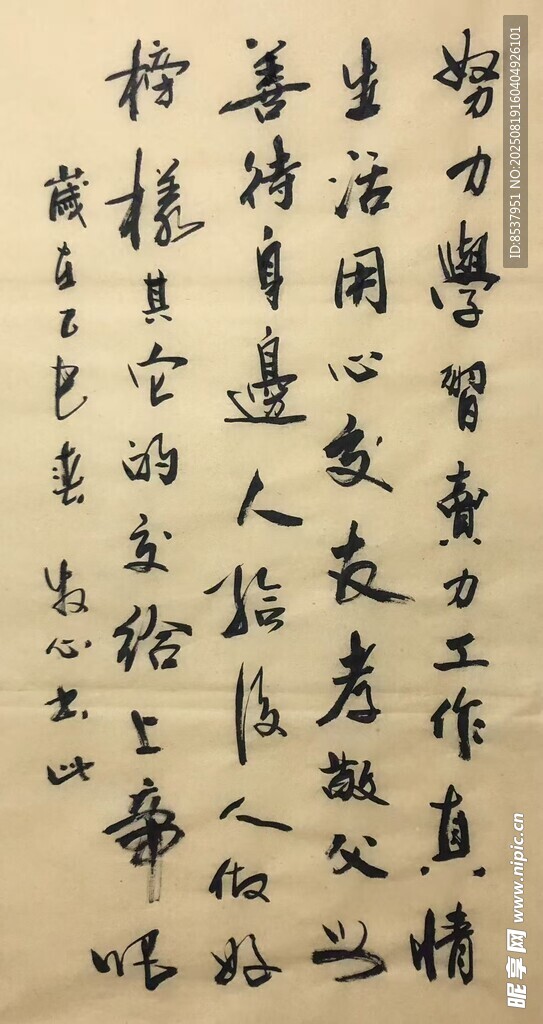 努力學習賣力工作真情
生活用心交友孝敬父母
善待身邊人給後人做好
榜樣其它的交給上帝吧
歲在乙巳春 牧心书此
ID:8537951 NO:20250819160404926101
昵享网 www.nipic.cn